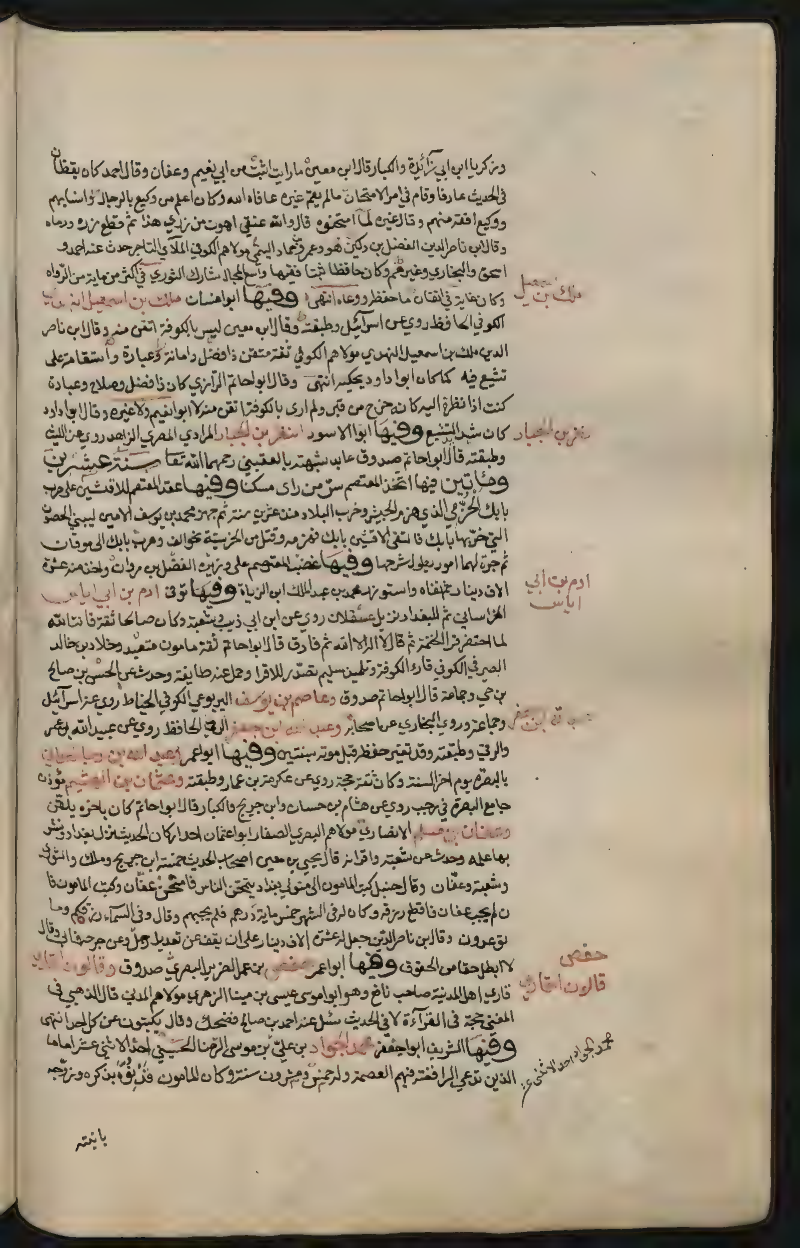 وزكريا ابن ابي زائدة والكبار قال ابن معين ما رايت اثبت من ابي نعيم وعفان وقال احمد كان يقظان
في الحديث عارفا وقام في امر الامتحان ما لم يقم غيره عافاه الله وكان اعلم من وكيع بالرجال وانسابهم
ووكيع افقه منهم وقال غيره لما امتحنوه قال والله عنقي اهون من زري هذا ثم قطع زره ورماه
وقال ابن ناصر الدين الفضل بن دكين هو عمرو بن حماد التيمي مولاهم الكوفي الملائي التاجر حدث عنه احمد و
اسحق والبخاري وغيرهم وكان حافظا ثبتا فقيها واسع المجال شارك الثوري في اكثر من ماية من الرواه
وكان غاية في اتقان ما حفظه ووعاه انتهى وفيها ابو غسان ملك بن اسمعيل النهدي
ملك بن اسمعيل
الكوفي الحافظ روى عن اسرآئيل وطبقته وقال ابن معين ليس بالكوفة اتقن منه وقال ابن ناصر
الدين ملك بن اسمعيل النهدي مولاهم الكوفي ثقة متقن ذا فضل وامانة وعبادة واستقامة على
تشيع فيه كما كان ابو داود يحكيه انتهى وقال ابو حاتم الرازي كان ذا فضل وصلاح وعبادة
كنت اذا نظرة اليه كانه خرج من قبر ولم ارى بالكوفة اتقن منه لا ابو نعيم ولا غيره وقال ابو داود
كان شديد التشيع وفيها ابو الاسود النضر بن الجبار المرادي المصري الزاهد روى عن الليث
نضر بن الجبار
وطبقته قال ابو حاتم صدوق عابد شبهته بالقعنبي رحمهما الله تعا سنة عشرين
ومئاتين فيها اتخذ المعتصم سر من راى مسكنا وفيها عقد المعتصم للافشين على حرب
بابك الخرمي الذي هزم الجيوش وخرب البلاد منذ عشرين سنة ثم جهز محمد بن يوسف الامين ليبني الحصون
التي خربها بابك فالتقى الافشين بابك فهزمه وقتل من الخرمية نحو الف وهرب بابك الى موقان
ثم جرة لهما امور يطول شرحها وفيها غضب المعتصم على وزيره الفضل بن مروان واخذ منه عشرة
الاف دينار ثم نفاه واستوزر محمد بن عبد الملك ابن الزياة وفيها توفى ادم بن ابي اياس
ادم بن ابي
اياس
الخراساني ثم البغدادي نزيل عسقلان روى عن ابن ابي ذيب وشعبة وكان صالحا ثقة قانتا لله
لما احتضر قرا الختمة ثم قال لا اله الا الله ثم فارق قال ابو حاتم ثقة مامون متعبد وخلاد بن خالد
الصيرفي الكوفي قارئ الكوفة وتلميذ سليم تصدر للاقرا وحمل عنه طايفة وحدث عن الحسن بن صالح
بن حي وجماعة قال ابو حاتم صدوق وعاصم بن يوسف اليربوعي الكوفي الخياط روى عن اسرآئيل
وجماعة وروى البخاري عن اصحابه وعبد الله ابن جعفر الرقي الحافظ روى عن عبيد الله بن عمر
عبد الله ابن جعفر
والرقي وطبقته وقد تغير حفظه قبل موته بسنتين وفيها ابو عمر وعبد الله بن رجا
بالبصرة يوم اخر السنة وكان ثقة حجة روى عن عكرمة بن عمار وطبقته وعثمان بن الهيثم موذن
جامع البصرة في رجب روى عن هشام بن حسان وابن جريج والكبار قال ابو حاتم كان باخره يلقن
وعفان بن مسلم الانصاري مولاهم البصري الصفار ابو عثمان احد اركان الحديث نزل بغداد ونشر
بها علمه وحدث عن شعبة واقرانه قال يحيى بن معين اصحاب الحديث خمسة ابن جريج وملك والثوري
وشعبة وعفان وقال حنبل كتب المامون الى متولي بغداد يمتحن الناس فامتحن عفان وكتب المامون فا
ن لم يجب عفان فاقطع رزقه وكان له في الشهر خمس ماية درهم فلم يجبهم وقال وفي السمآء رزقكم وما
توعدون وقال ابن ناصر الدين جعل له عشرة الاف دينار على ان يقف عن تعديل رجل وعن جرحه فابى وقال
لا ابطل حقا من الحقوق وفيها ابو عمر حفص بن عمر الضرير البصري صدوق وقالون القاري
حفص
قالون القاري
قاري اهل المدينة صاحب نافع وهو ابو موسى عيسى بن مينا الزهري مولاهم المدني قال الذهبي في
المغني حجة في القرآءة لا في الحديث سئل عنه احمد بن صالح فضحك وقال يكتبون عن كل احد انتهى
وفيها الشريف ابو جعفر محمد الجواد بن علي بن موسى الرضا الحسيني احد الاثني عشر اماما
محمد الجواد احد الاثني عشر
الذين تدعي الرافضة فيهم العصمة وله خمس وعشرون سنة وكان المامون قد نوه بذكره وزوجه
بابنته